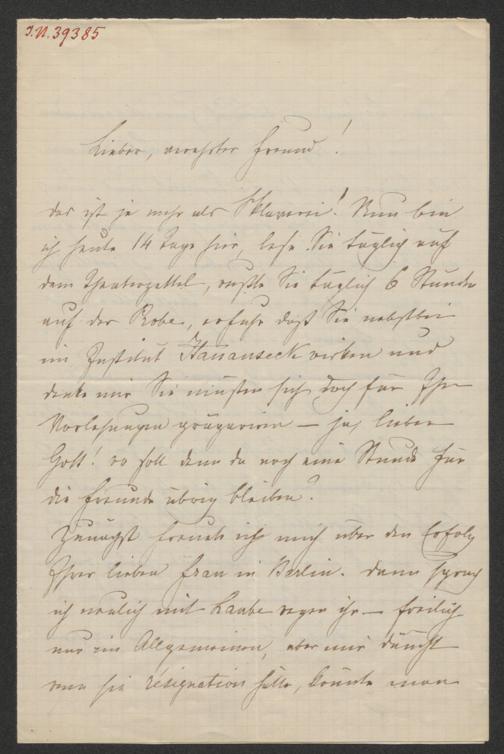 I.N. 39385
Lieber, verehrter Freund!
das ist ja mehr als Sklaverei! Nun bin
ich heute 14 Tage hier, lese Sie täglich auf
dem Theaterzettel, wußte Sie täglich 6 Stunden
auf der Probe, erfuhr daß Sie nebstbei
im Institut Hananseck wirken und
denke mir Sie müssen sich doch für Ihre
Vorlesungen präpariren — ja, lieber
Gott! wo soll denn da noch eine Stunde für
die Freunde übrig bleiben?
freute ich mich über den Erfolg
Ihrer lieben Frau in Berlin. Dann sprach
ich neulich mit Laube wegen ihr — freilich
nur im Allgemeinen, aber mir däucht
wenn sie résignation hätte, könnte man